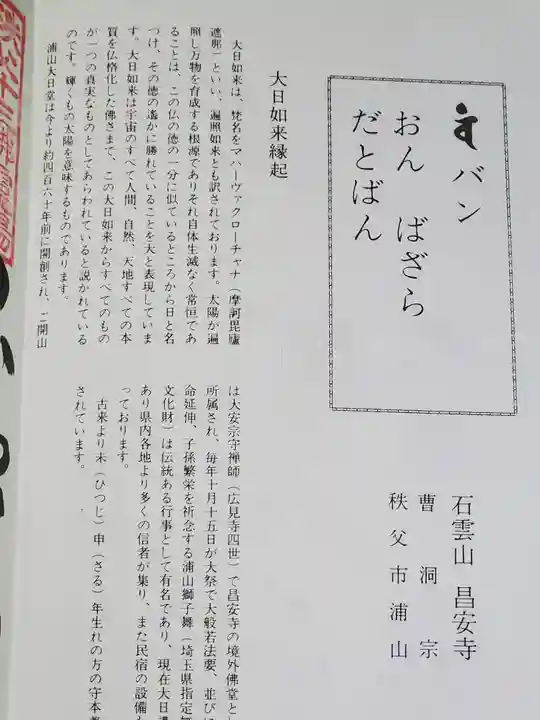 バン
おん　ばざら
だとばん
石雲山　昌安寺
曹洞宗
秩父市浦山
大日如来縁起
大日如来は、梵名をマハーヴァクローチャナ（摩訶毘盧
遮那）といい、遍照如来とも訳されております。太陽が遍
照し万物を育成する根源でありそれ自体生滅なく常恒であ
ることは、この仏の徳の一分に似ているところから日と名
つけ、その徳の遙かに勝れていることを大と表現していま
す。大日如来は宇宙のすべて人間、自然、天地すべての本
質を仏格化した佛さまで、この大日如来からすべてのもの
が一つの真実なものとしてあらわれていると説かれている
のです。輝くもの太陽を意味するものであります。
浦山大日堂は今より約四百六十年前に開創され、ご開山
は大安宗守禅師（広見寺四世）で昌安寺の境外佛堂とし
所属され、毎年十月十五日が大祭で大般若法要、並びに
命延伸、子孫繁栄を祈念する浦山獅子舞（埼玉県指定無
文化財）は伝統ある行事として有名であり、現在大日
あり県内各地より多くの信者が集り、また民宿の設備
っております。
古来より未（ひつじ）申（さる）年生れの方の守本
されています。